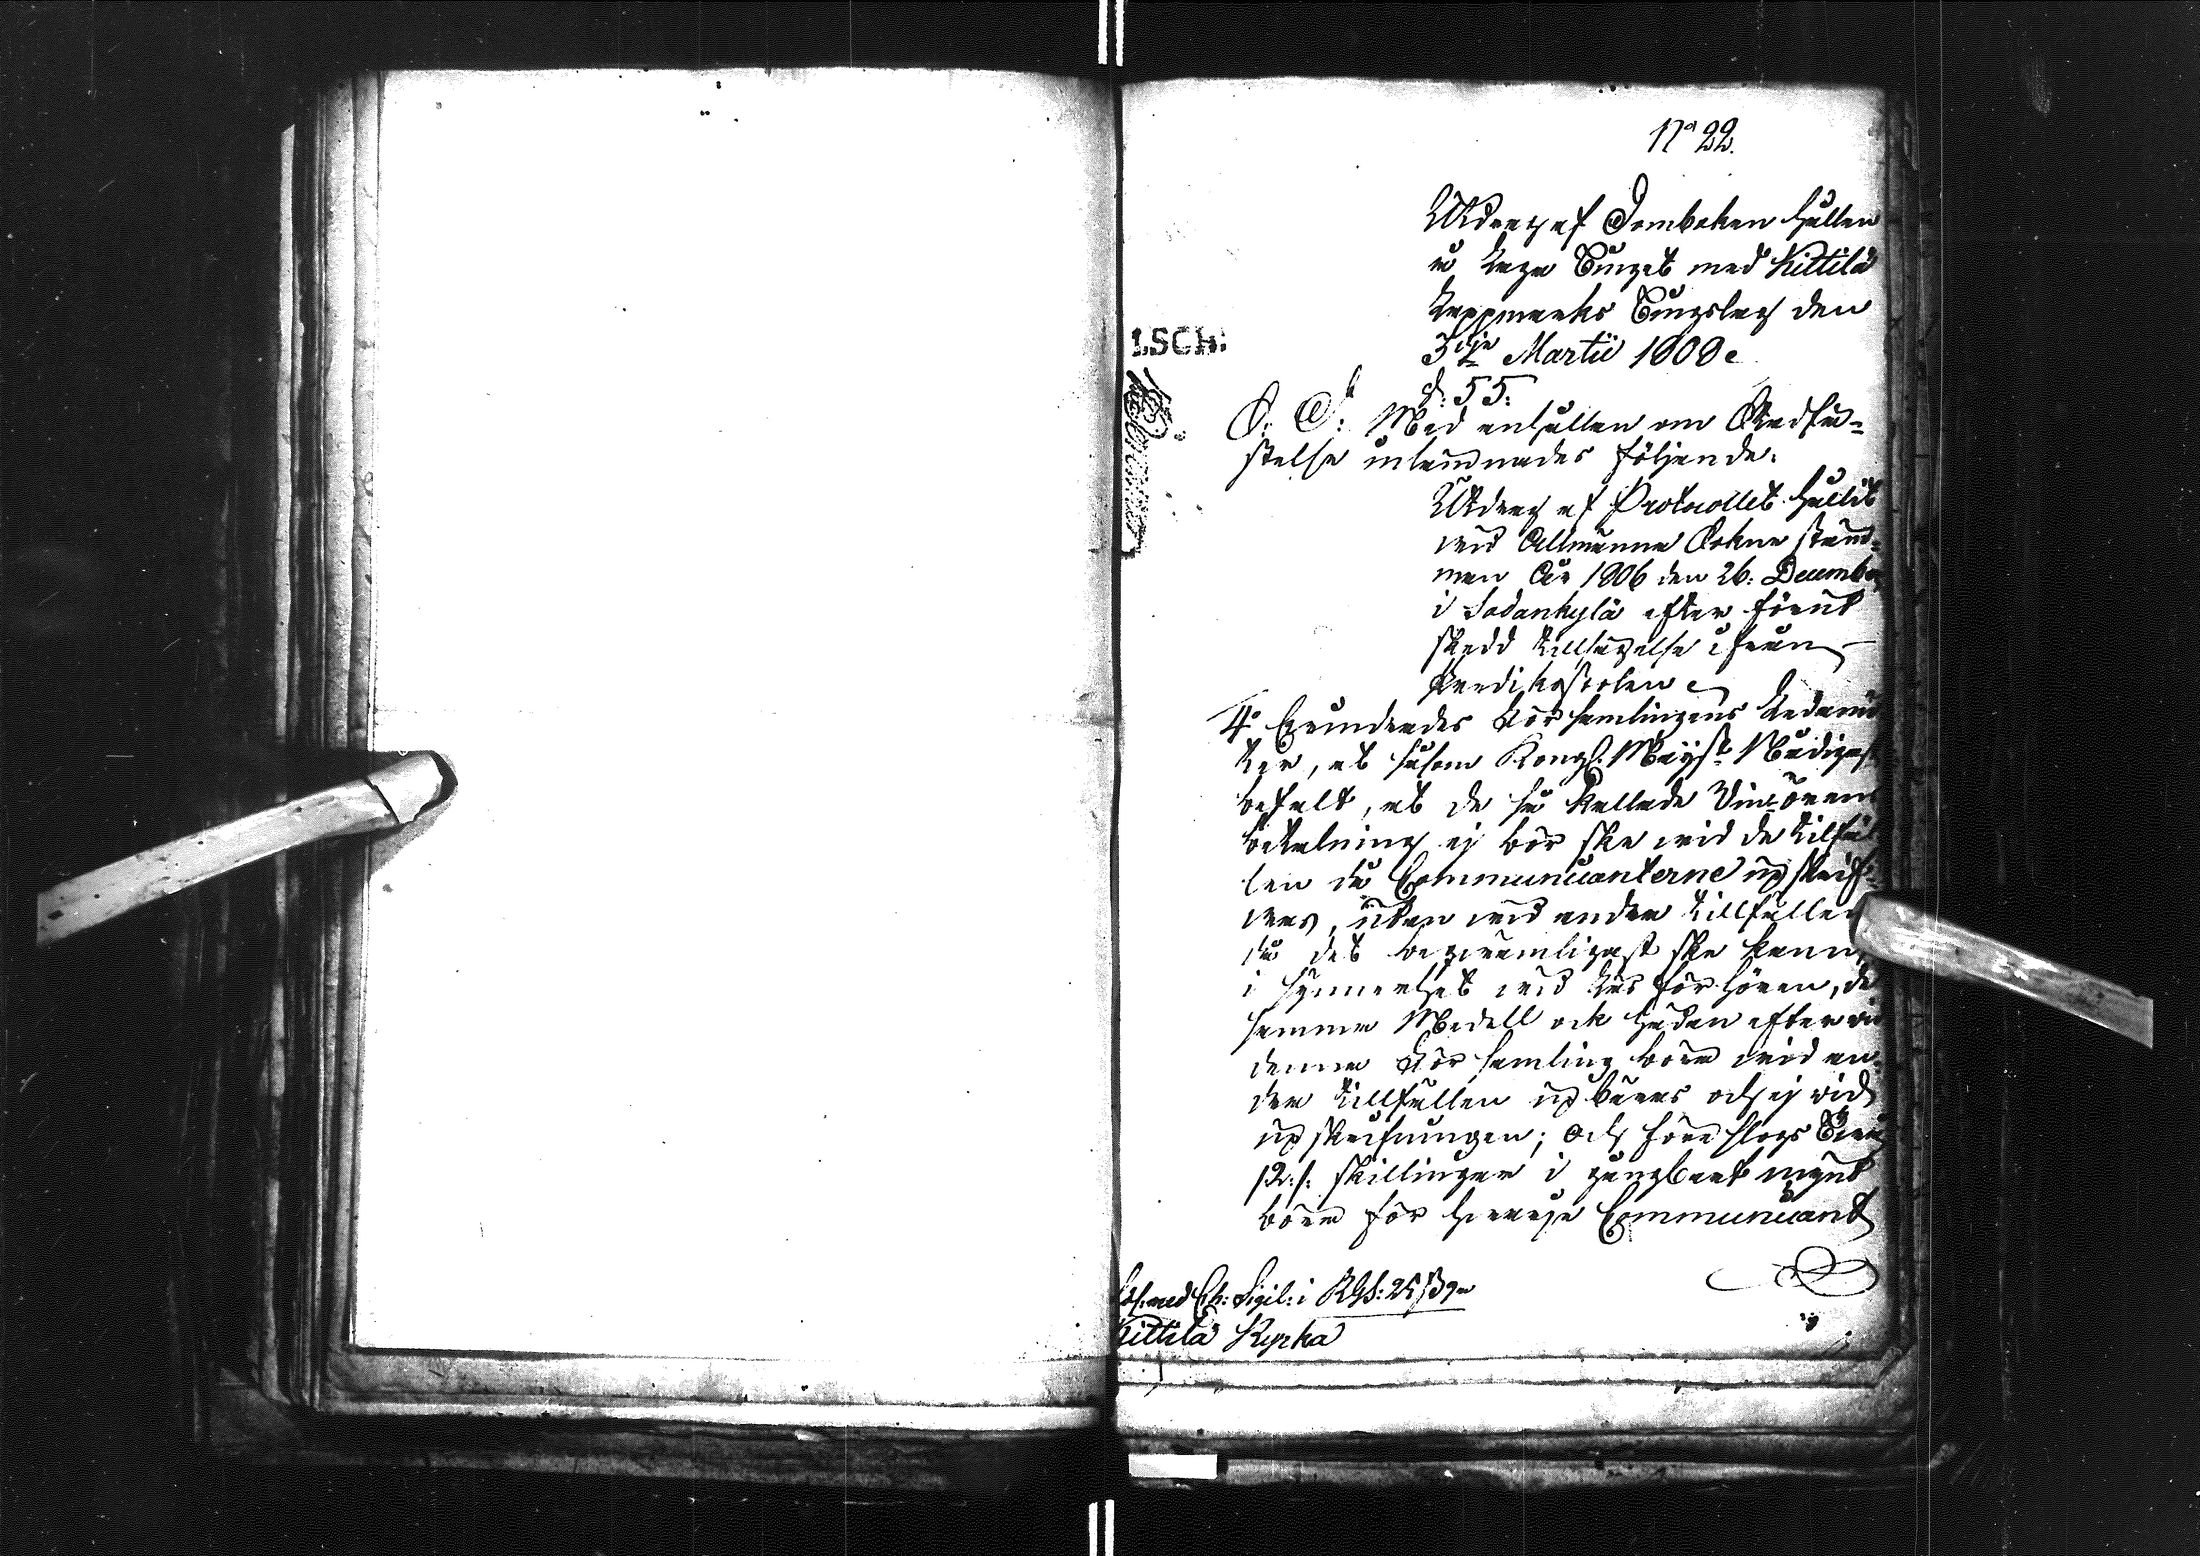 No 22.
Utdrag af Domboken hållen
å Laga Tinget med Kittilä
Lappmarks Tingslag den
3dje Martii 1808.
§: 55.
S. D: Med anhållan om Stadfä-
stelse inlemnades följande:
Utdrag af Protocollet hållit
wid Allmänna Sokne stäm-
man År 1806 den 26. Decemb.
i Sodankylä efter förut
skedd tillsägelse ifrån
Predikostolen
4o Grundades Församlingens Ledamö
ter, at såsom Kongl. Mayst. Nådigast
befalt, at de så kallade Vin-ören
betalning ej bör ske wid de tilfäl
len då Communicanterne up skrif-
was, utan wid andra tillfällen
då det beqwämligast ske kann,
i synnerhet wid Läs förhören, de
samma Medell ock hädan efter wid
denna Församling böra wid an-
dra tillfällen upbäras och ej wid
upskrifningen; och föreslogs
12.s. skillingar i gångbart mynt
böra för hwarje Communicant
Kittilä Kyrka
LSCH: